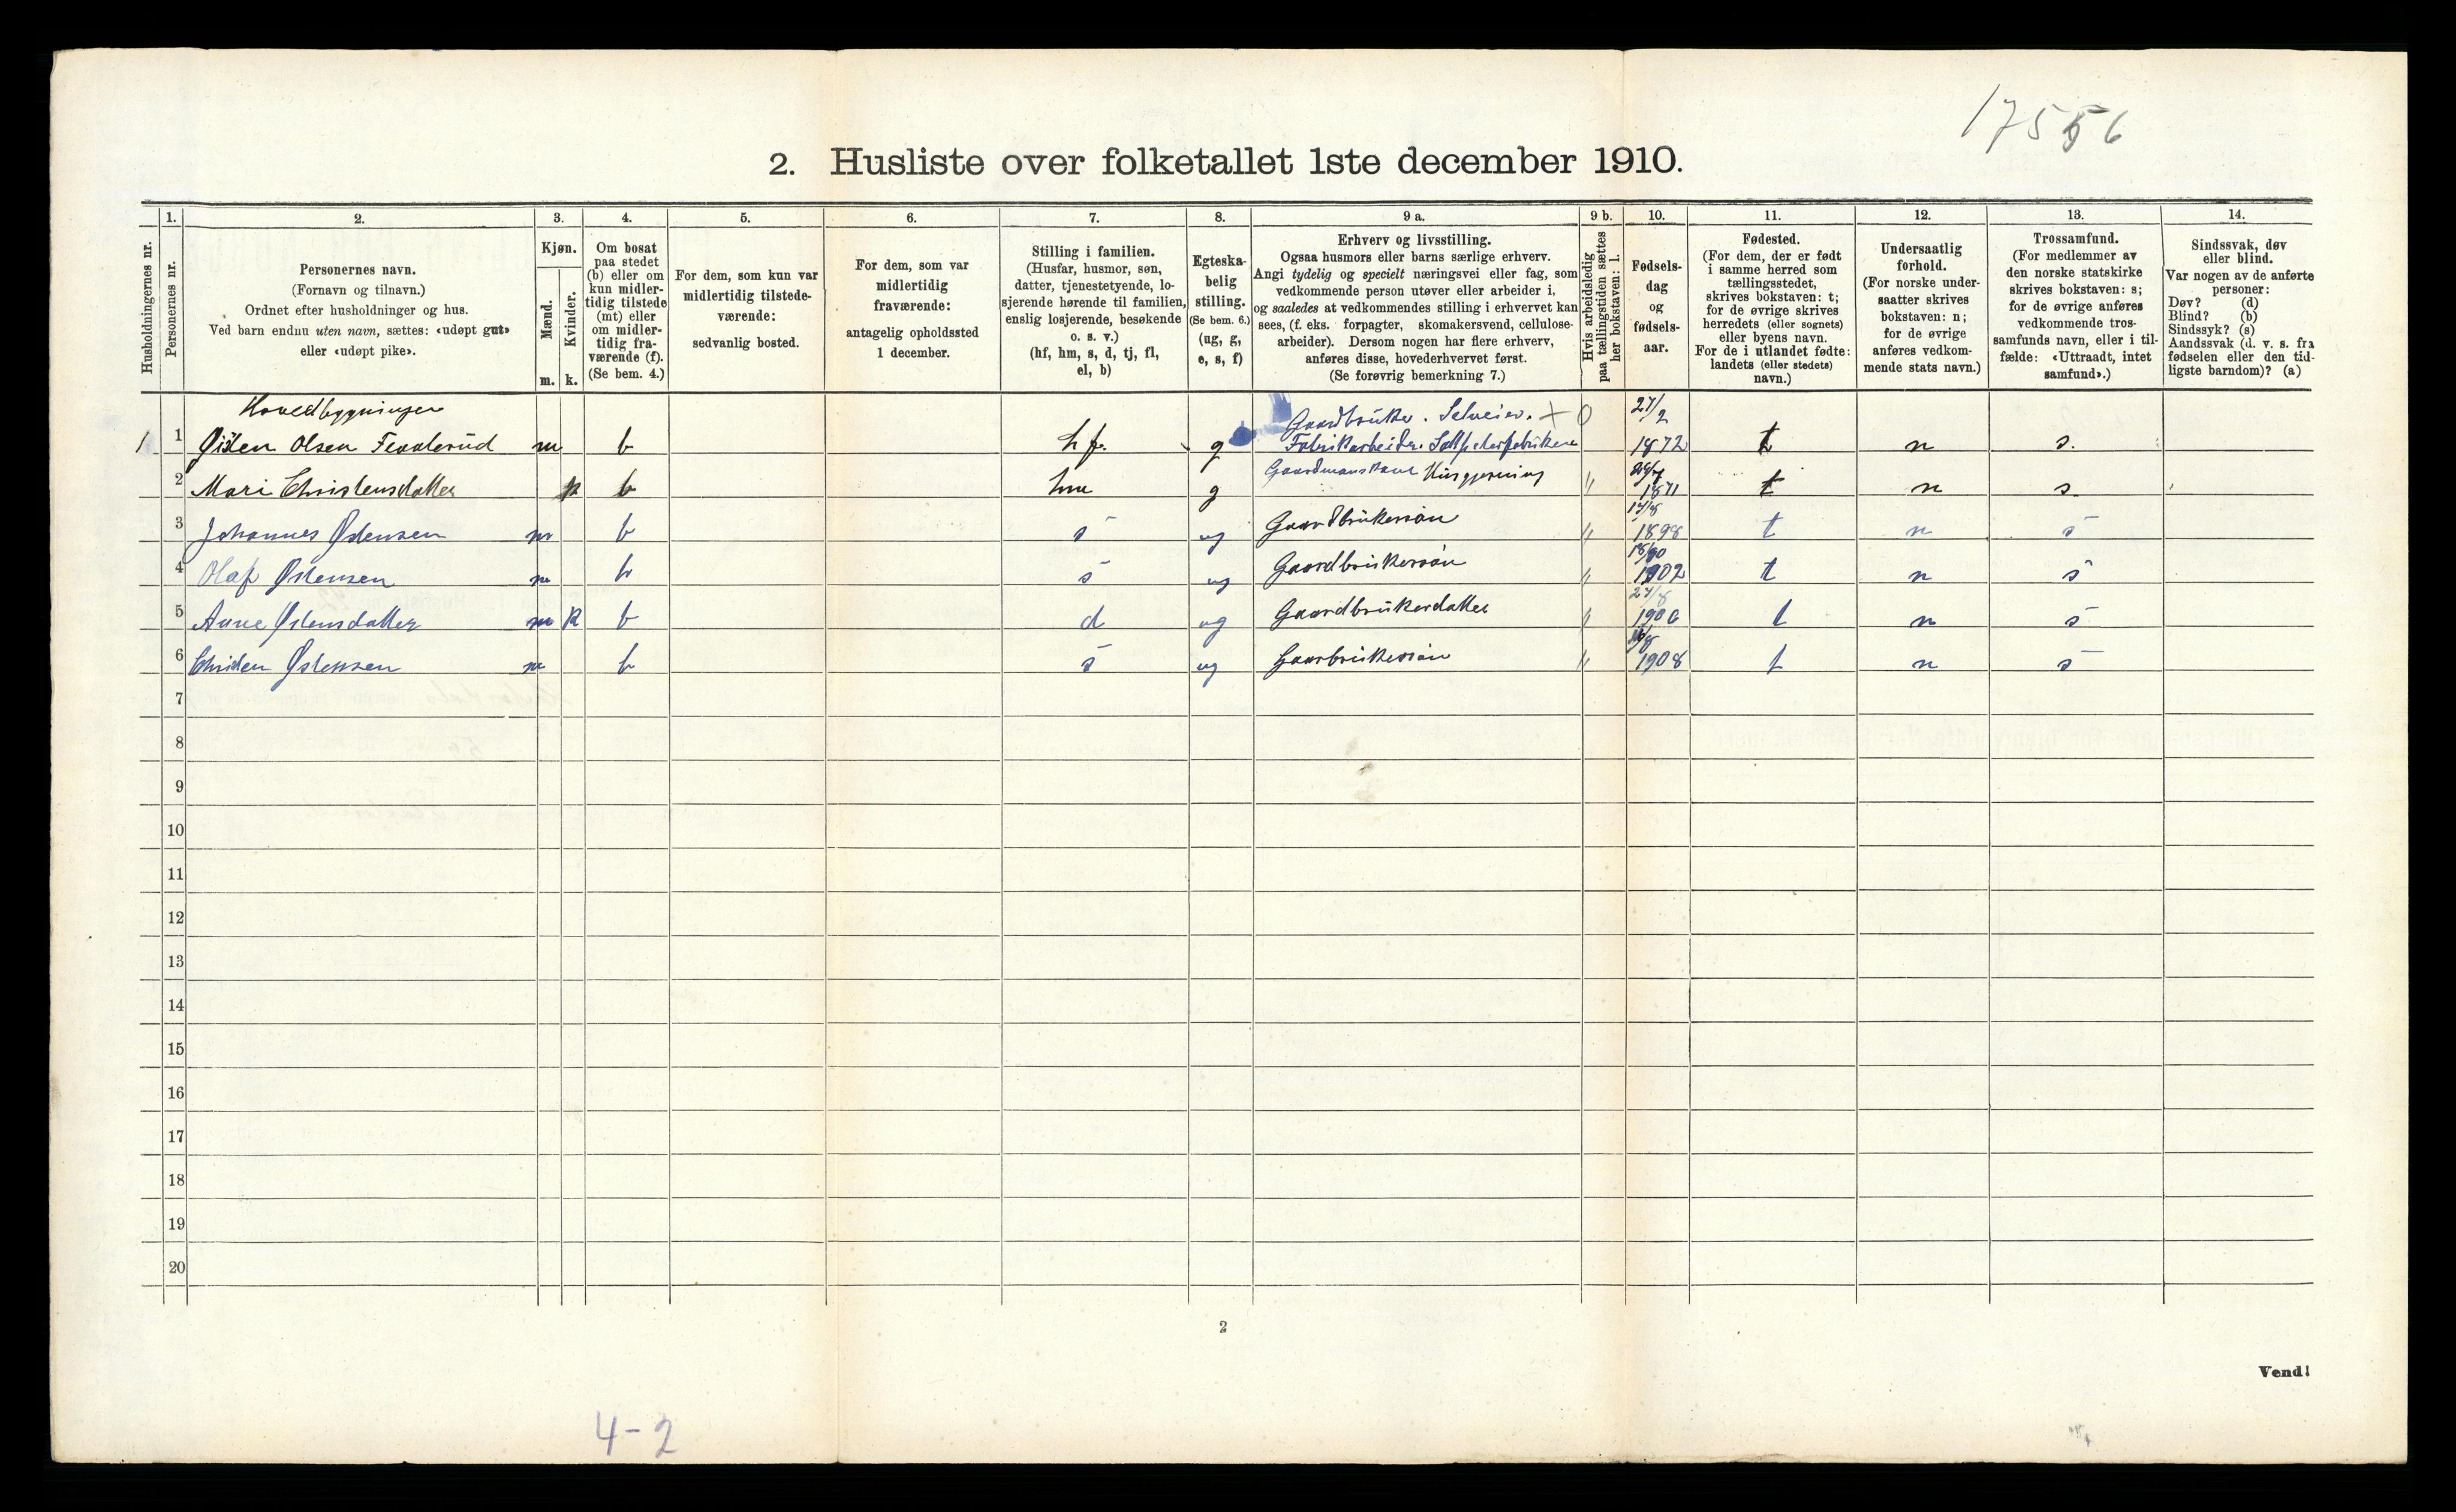 17556
2. Husliste over folketallet 1ste december 1910.
Husholdningernes nr.
1.
Personernes nr.
2.
Personernes navn.
(Fornavn og tilnavn.)
Ordnet efter husholdninger og hus.
Ved barn endnu uten navn, sættes: «udøpt gut»
eller «udøpt pike».
3.
Kjøn.
Mænd.
Kvinder.
m. k.
4.
Om bosat
paa stedet
(b) eller om
kun midler-
tidig tilstede
(mt) eller
om midler-
tidig fra-
værende (f).
(Se bem. 4.)
5.
For dem, som kun var
midlertidig tilstede-
værende:
sedvanlig bosted.
6.
For dem, som var
midlertidig
fraværende:
antagelig opholdssted
1 december.
7.
Stilling i familien.
(Husfar, husmor, søn,
datter, tjenestetyende, lo-
sjerende hørende til familien,
enslig losjerende, besøkende
o. s. v.)
(hf, hm, s, d, tj, fl,
el, b)
8.
Egteska-
belig
stilling.
(Se bem. 6.)
(ug, g,
e, s, f)
9 a.
Erhverv og livsstilling.
Ogsaa husmors eller barns særlige erhverv.
Angi tydelig og specielt næringsvei eller fag, som
vedkommende person utøver eller arbeider i,
og saaledes at vedkommendes stilling i erhvervet kan
sees, (f. eks. forpagter, skomakersvend, cellulose-
arbeider). Dersom nogen har flere erhverv,
anføres disse, hovederhvervet først.
(Se forøvrig bemerkning 7.)
9 b.
Hvis arbeidsledig
paa tællingstiden sættes
her bokstaven: l.
10.
Fødsels-
dag
og
fødsels-
aar.
11.
Fødested.
(For dem, der er født
i samme herred som
tællingsstedet,
skrives bokstaven: t;
for de øvrige skrives
herredets (eller sognets)
eller byens navn.
For de i utlandet fødte:
landets (eller stedets)
navn.)
12.
Undersaatlig
forhold.
(For norske under-
saatter skrives
bokstaven: n;
for de øvrige
anføres vedkom-
mende stats navn.)
13.
Trossamfund.
(For medlemmer av
den norske statskirke
skrives bokstaven: s;
for de øvrige anføres
vedkommende tros-
samfunds navn, eller i til-
fælde: «Uttraadt, intet
samfund».)
14.
Sindssvak, døv
eller blind.
Var nogen av de anførte
personer:
Døv? (d)
Blind? (b)
Sindssyk? (s)
Aandssvak (d. v. s. fra
fødselen eller den tid-
ligste barndom)? (a)
Hovedbygningen Gaardbruker. Selveier. + 0 27/2
1 1 Øisten Olsen m b hf. g Fabrikarbeider. Saltpeterfabriken 1872 t n s.
2 Mari Christensdatter k b hm g Gaardmanskone Husgjerning " 1871 t n s.
3 Johannes Østensen m b s ug Gaardbrukersøn " 1898 t n s
4 Olaf Østensen m b s ug Gaardbrukersøn " 1902 t n s
27/8
5 Anne Østensdatter m k b d ug Gaardbrukerdatter " 1906 t n s
6 Christen Østensen m b s ug Gaarbrukersøn " 1908 t n s
7
8
9
10
11
12
13
14
15
16
17
18
19
20
2
Vend!
4-2